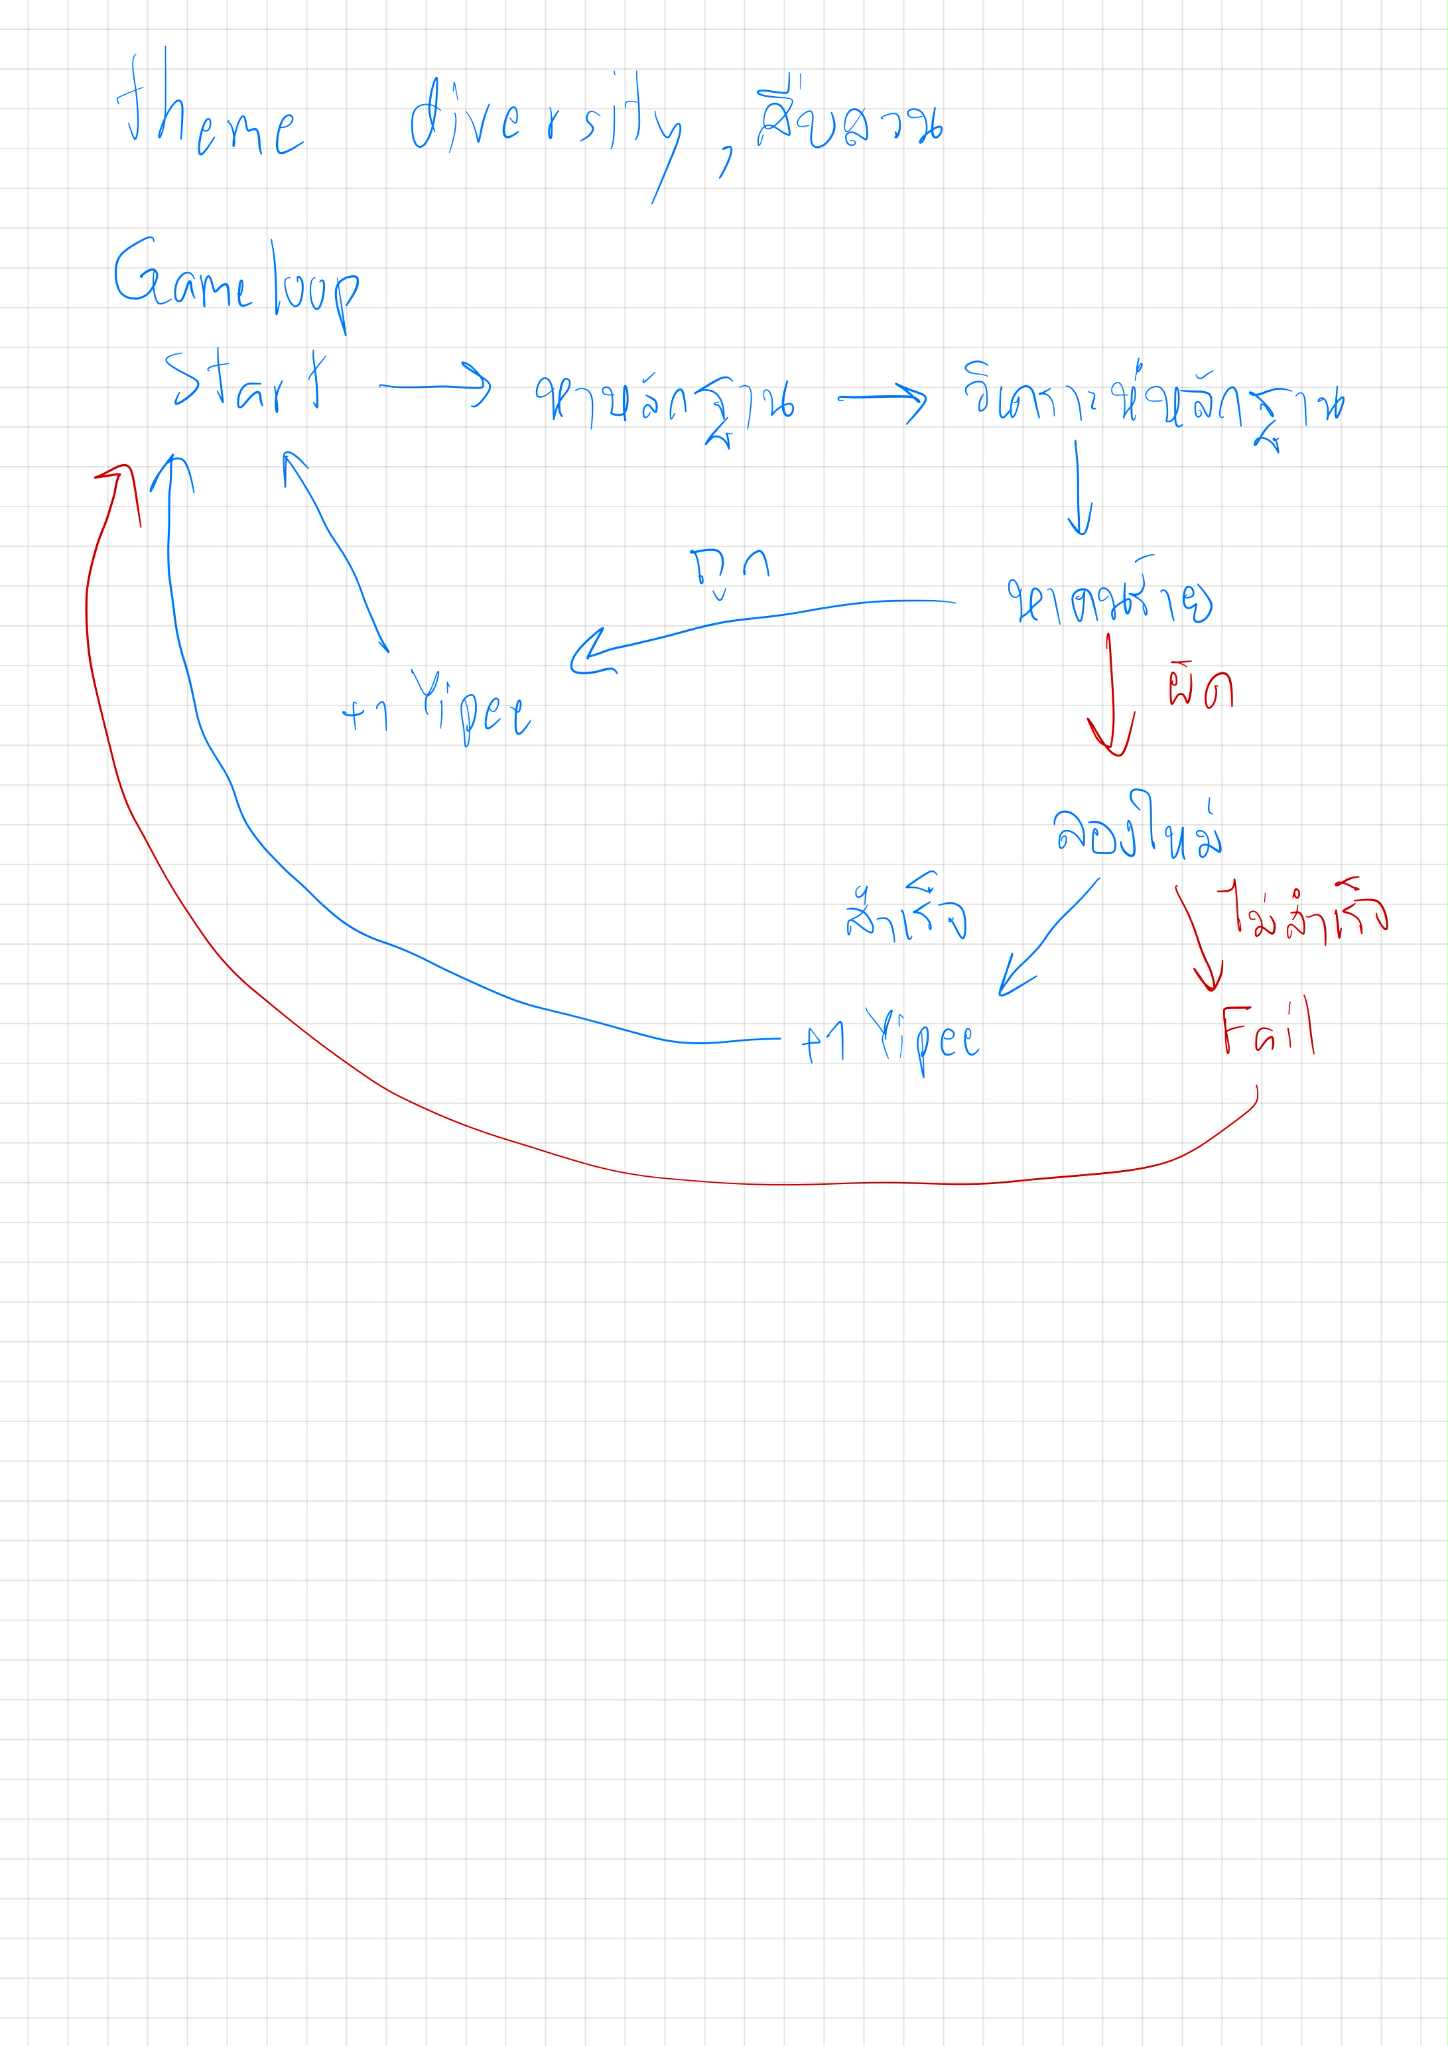 theme diversity, สืบสวน
Gameloop
Start → หาหลักฐาน → วิเคราะห์หลักฐาน
ถูก
หาคนร้าย
ผิด
+1 Yipee
ลองใหม่
สำเร็จ
ไม่สำเร็จ
+1 Yipee
Fail